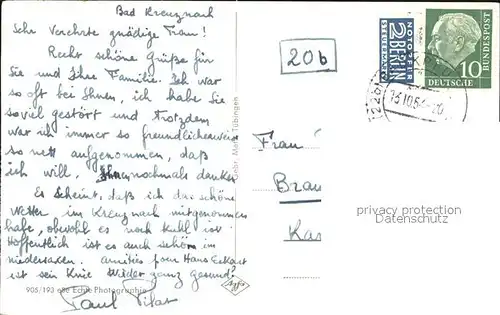 Bad Kreuznach
Sehr Verehrte gnädige Frau!
Recht schöne Grüße für
Sie und Ihre Familie. Ich war
so oft bei Ihnen, ich habe Sie
soviel gestört und trotzdem
war ich immer so freundlicherweise
so nett aufgenommen, daß
ich will, Ihnen nochmals danken
Es scheint, daß ich das schöne
Wetter im Kreuznach mitgenommen
habe, obwohl es noch kuhl ist
Hoffentlich ist es auch schön im
niedersaxen. Hans Eckart
ist sein Knie wieder ganz gesund?
Paul
905/193 Echte Photographie
Agfa
Gebr. Metz, Tübingen
20b
NOTOPFER
2 BERLIN
STEUERMARKE
DEUTSCHE
BUNDESPOST
10
(22b)
13.10.54
Frau
Brau
Kas
privacy protection
Datenschutz